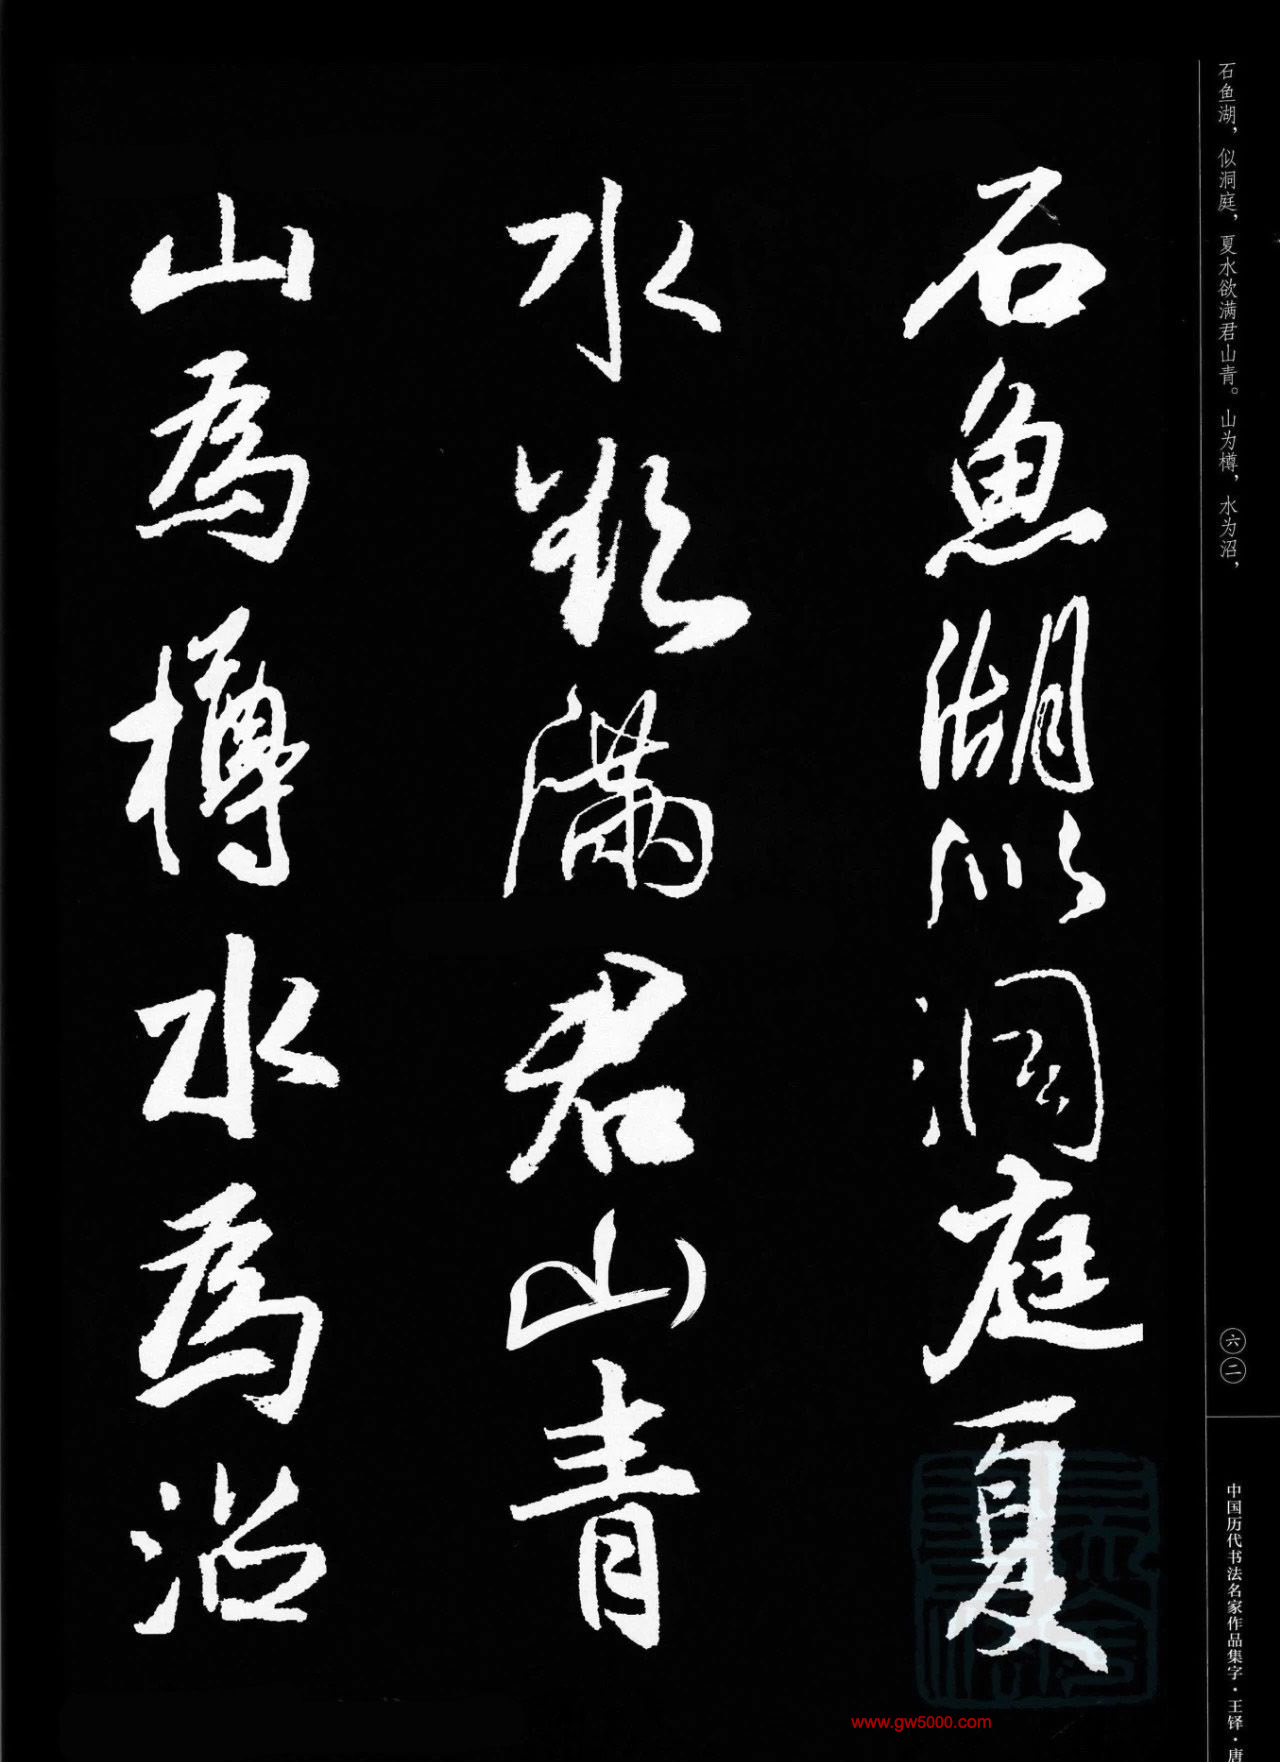 石鱼湖，似洞庭，夏水欲满君山青。山为樽，水为沼，
石魚湖似洞庭夏
水欲滿君山青
山為樽水為沼
六二
中国历代书法名家作品集字·王铎·唐
www.gw5000.com